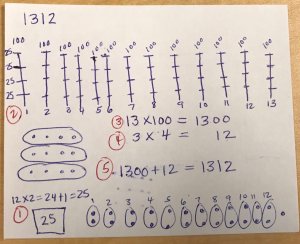 1312
100 100 100 100 100 100 100 100 100 100 100 100 100
25
25
25
25
② 1 2 3 4 5 6 7 8 9 10 11 12 13
③ 13 x 100 = 1300
④ 3 x 4 = 12
⑤ 1300 + 12 = 1312
12 x 2 = 24 + 1 = 25
① 25 1 2 3 4 5 6 7 8 9 10 11 12